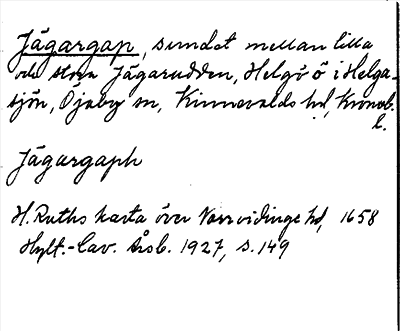 Jägargap, sundet mellan lilla
och stora Jägarudden, Helgö ö i Helga-
sjön, Öjaby sn, Kinnevalds hd, Kronob.
l.
Jägargaph
H. Ruths karta över Norrvidinge hd, 1658
Hylt.-Cav. Årsb. 1927, s. 149